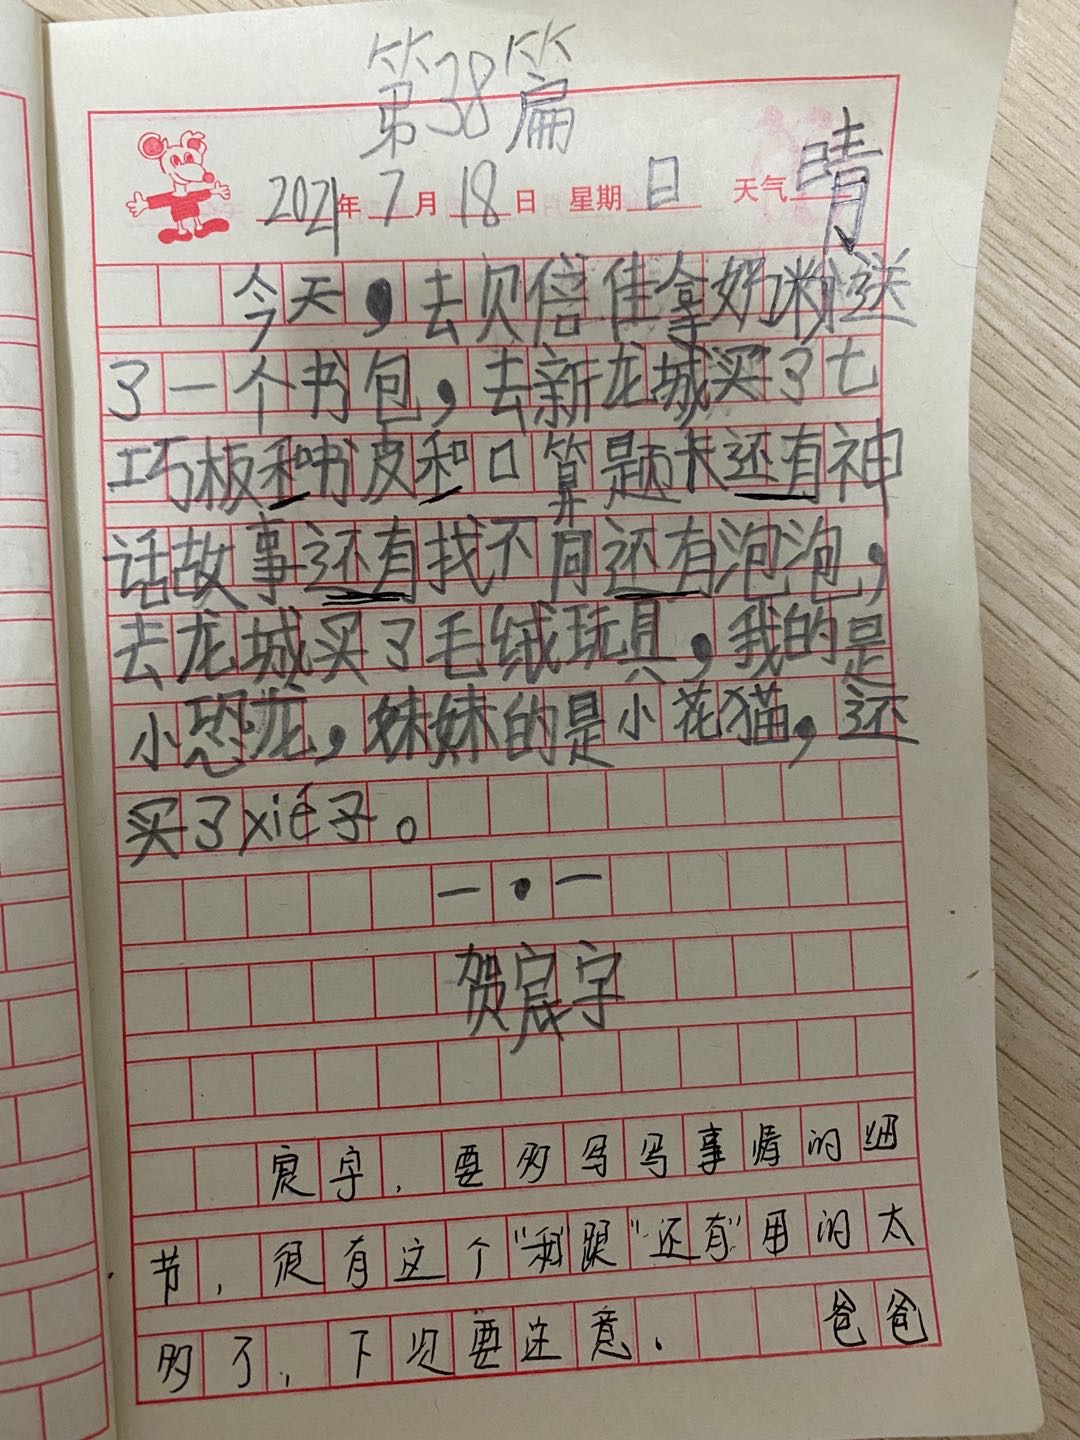 第38篇
2021年7月18日 星期日 天气晴
今天，去贝倍佳拿奶粉送
了一个书包，去新龙城买了七
巧板和书皮和口算题卡还有神
话故事还有找不同还有泡泡，
去龙城买了毛绒玩具，我的是
小恐龙，妹妹的是小花猫，还
买了xié子。
一·一
贺宸宇
宸宇，要多写写事情的细
节，很有这个“和”跟“还有”用的太
多了，下次要注意. 爸爸